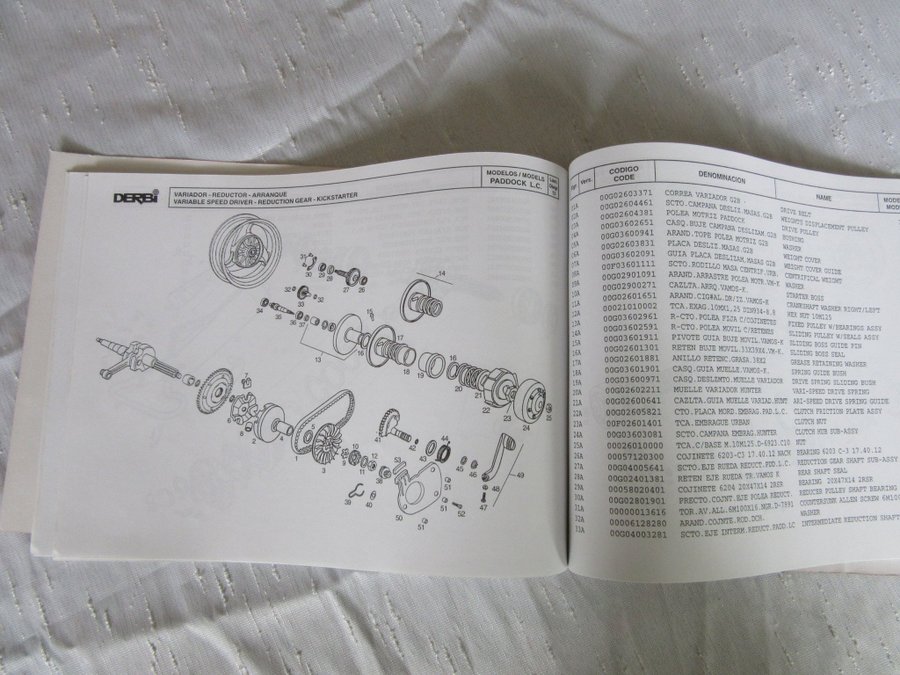 DERBI
VARIADOR - REDUCTOR - ARRANQUE
VARIABLE SPEED DRIVER - REDUCTION GEAR - KICKSTARTER
MODELOS / MODELS
PADDOCK L.C.
31
30
29
28
27
26
14
32
33
32
34
36
35
37
15
13
16
17
18
19
16
20
21
22
23
24
25
7
6
8
2
4
5
1
3
10
9
11
12
41
42
43
44
45
46
49
48
47
53
51
52
50
51
39
40
CODIGO
CODE
DENOMINACION
NAME
Vers.
00G02603371 CORREA VARIADOR G2B DRIVE BELT
00G02604461 SCTO.CAMPANA DESLIZ.MASAS.G2B WEIGHTS DISPLACEMENT PULLEY
00G02604381 POLEA MOTRIZ PADDOCK DRIVE PULLEY
00G03602651 CASQ.BUJE CAMPANA DESLIZAM.G2B BUSHING
00G03600941 ARAND.TOPE POLEA MOTRIZ G2B WASHER
00G02603831 PLACA DESLIZ.MASAS.G2B WEIGHT COVER
00G03602091 GUIA PLACA DESLIZAM.MASAS G2B WEIGHT COVER GUIDE
00F03601111 SCTO.RODILLO MASA CENTRIF.VRB. CENTRIFICAL WEIGHT
00G02901091 ARAND.ARRASTRE POLEA MOTR.VM-K WASHER
00G02900271 CAZLTA.ARRQ.VAMOS-K. STARTER BOSS
00G02601651 ARAND.CIGÑAL.DR/IZ.VAMOS-K CRANKSHAFT WASHER RIGHT/LEFT
00021010002 TCA.EXAG.10MX1,25 DIN934-8.8 HEX NUT 10M125
00G03602961 R-CTO.POLEA FIJA C/COJINETES FIXED PULLEY W/BEARINGS ASSY
00G03602591 R-CTO.POLEA MOVIL C/RETENES SLIDING PULLEY W/SEALS ASSY
00G02605911 PIVOTE GUIA BUJE MOVIL.VAMOS-K SLIDING BOSS GUIDE PIN
00G02601301 RETEN BUJE MOVIL.33X39X4.VM-K. SLIDING BOSS SEAL
00G02601881 ANILLO RETENC.GRASA.38X2 GREASE RETAINING WASHER
00G03601901 CASQ.GUIA MUELLE.VAMOS-K. SPRING GUIDE BUSH
00G03600971 CASQ.DESLEMTO.MUELLE VARIADOR DRIVE SPRING SLIDING BUSH
00G02602211 MUELLE VARIADOR HUNTER VARI-SPEED DRIVE SPRING
00G02600641 CAZLTA.GUIA MUELLE VARIAD.HUNT ARI-SPEED DRIVE SPRING GUIDE
00G02605821 CTO.PLACA MORD.EMBRAG.PAD.L.C. CLUTCH FRICTION PLATE ASSY
00F02601401 TCA.EMBRAGUE URBAN CLUTCH NUT
00G03603081 SCTO.CAMPANA EMBRAG.HUNTER CLUTCH HUB SUB-ASSY
00026010000 TCA.C/BASE M.10M125.D-6923.C10 NUT
00057120300 COJINETE 6203-C3 17.40.12 NACH BEARING 6203 C-3 17.40.12
00G04005641 SCTO.EJE RUEDA REDUCT.PDD.L.C. REDUCTION GEAR SHAFT SUB-ASSY
00G02401381 RETEN EJE RUEDA TR.VAMOS K REAR SHAFT SEAL
00058020401 COJINETE 6204 20X47X14 2RSR BEARING 20X47X14 2RSR
00G02801901 PRECTO.COJNT.EJE POLEA REDUCT. REDUCER PULLEY SHAFT BEARING
00000013616 TOR.AV.ALL.6M100X16.NGR.D-7991 COUNTERSUNK ALLEN SCREW 6M100
00006128280 ARAND.COJNTE.ROD.DCH. WASHER
00G04003281 SCTO.EJE INTERM.REDUCT.PADD.LC INTERMEDIATE REDUCTION SHAFT